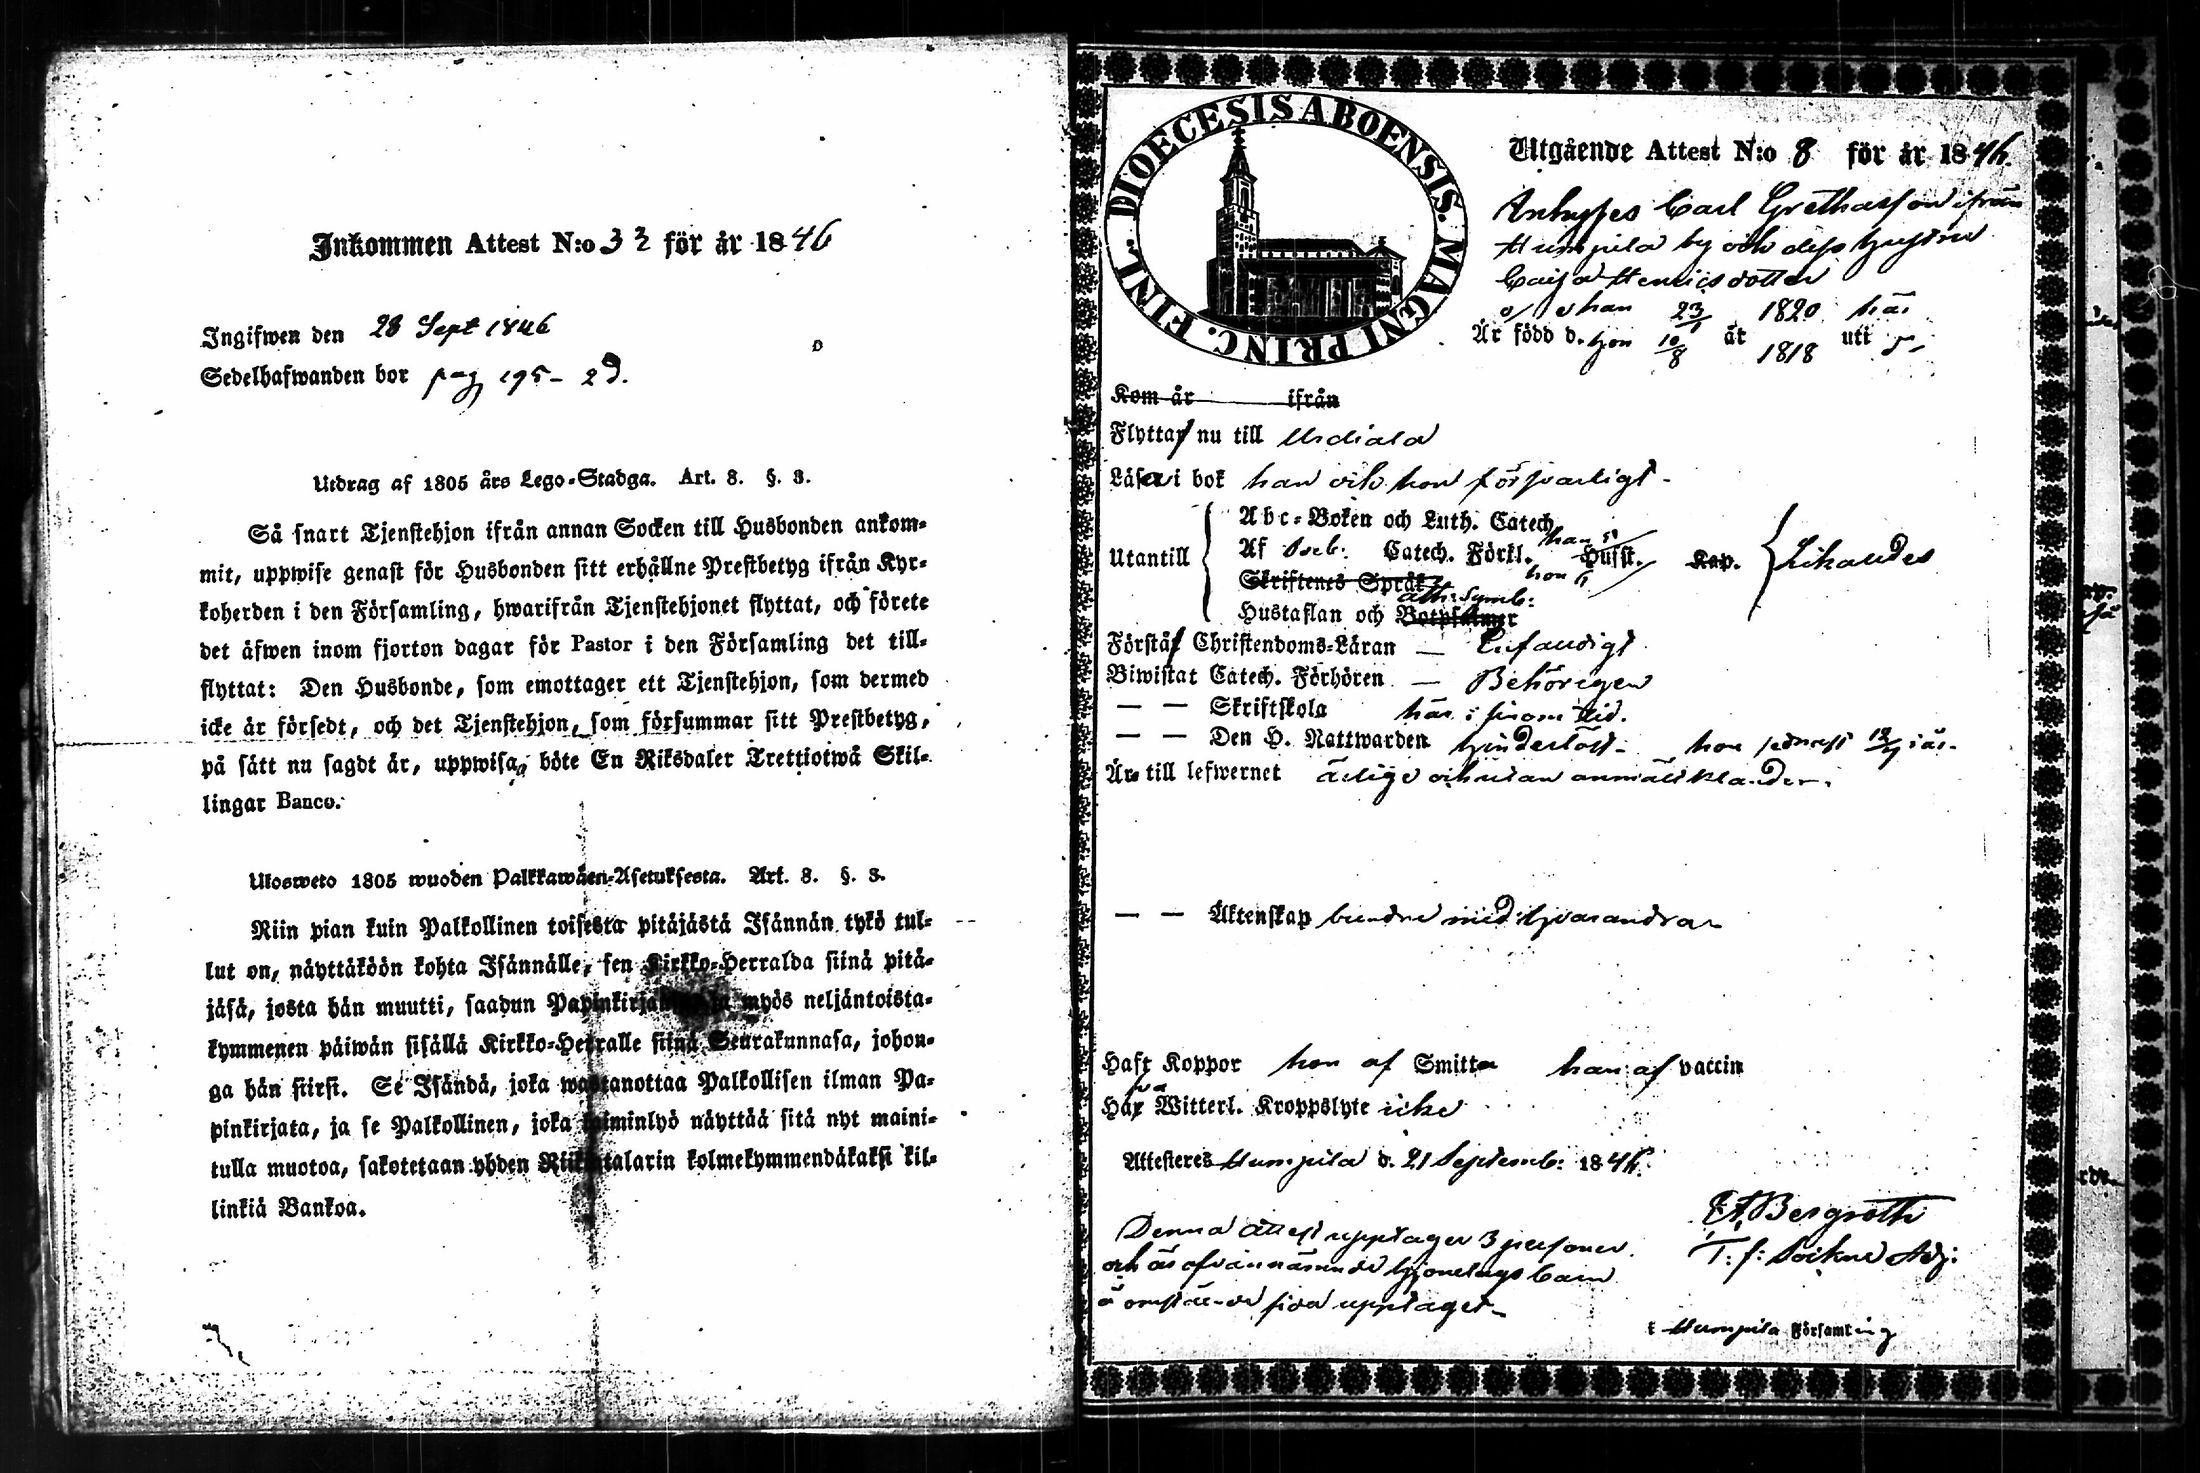 Inkommen Attest N:o 32 för år 1846
Ingifwen den 28 Sept 1846
Sedelhafwanden bor pag 195 - 2d.
Utdrag af 1805 års Lego-Stadga. Art. 8. §. 3.
Så snart Tjenstehjon ifrån annan Socken till Husbonden ankom-
mit, uppwise genast för Husbonden sitt erhållne Prestbetyg ifrån Kyr-
koherden i den Församling, hwarifrån Tjenstehjonet flyttat, och förete
det äfwen inom fjorton dagar för Pastor i den Församling det till-
flyttat: Den Husbonde, som emottager ett Tjenstehjon, som dermed
icke är försedt, och det Tjenstehjon, som försummar sitt Prestbetyg,
på sätt nu sagdt är, uppwisa, böte En Riksdaler Trettiotwå Skil-
lingar Banco.
Ulosweto 1805 wuoden Palkkawäen-Asetuksesta. Art. 8. §. 3.
Niin pian kuin Palkollinen toisesta pitäjästä Isännän tykö tul-
lut on, näyttäköön kohta Isännälle, sen Kirkko-Herralda siinä pitä-
jäsä, josta hän muutti, saadun Papinkirjan myös neljäntoista-
kymmenen päiwän sisällä Kirkko-Herralle siinä Seurakunnasa, johon-
ga hän siirsi. Se Isändä, joka wastanottaa Palkollisen ilman Pa-
pinkirjata, ja se Palkollinen, joka laiminlyö näyttää sitä nyt maini-
tulla muotoa, sakotetaan yhden Riikintalarin kolmekymmendäkaksi kil-
linkiä Bankoa.
DIOECESIS ABOENSIS. MAGNI PRINC. FINL.
Utgående Attest N:o 8 för år 1846.
Carl Grethasson ifrån
Humpila by och dess hustru
Caisa Henricsdotter
han 23/1 1820 här
Är född d. hon 10/8 år 1818 uti
Kom år ifrån
Flyttar nu till Urdiala
Läsa i bok han och hon försvarligt -
Utantill
Abc-Boken och Luth. Catech.
Af Sveb: Catech. Förkl. han 5 Husst. Kap. Likaledes
Skriftenes Språk hon 5
Ath: Symb:
Hustaflan och Botpsalmer
Förstå Christendoms-Läran — Enfaudigt
Biwistat Catech. Förhören — Behörigen
— — Skriftskola här i sinom tid.
— — Den H. Nattwarden hinderlöst - hon sednast 12/7 i år.
Är till lefwernet ärlige och utan anmäldt klander.
— — Äktenskap bundne med hvarandra
Haft Koppor hon af Smitta han af vaccin
Hafva Witterl. Kroppslyte icke
Attesteres Humpila d. 21 Septemb: 1846.
Bergroth
T: f: Sockne Adj:
Denna attest upptager 3 personer
och är ofvannämnde hjonelags barn
å omstående sida upptaget -
i Humpila Församling